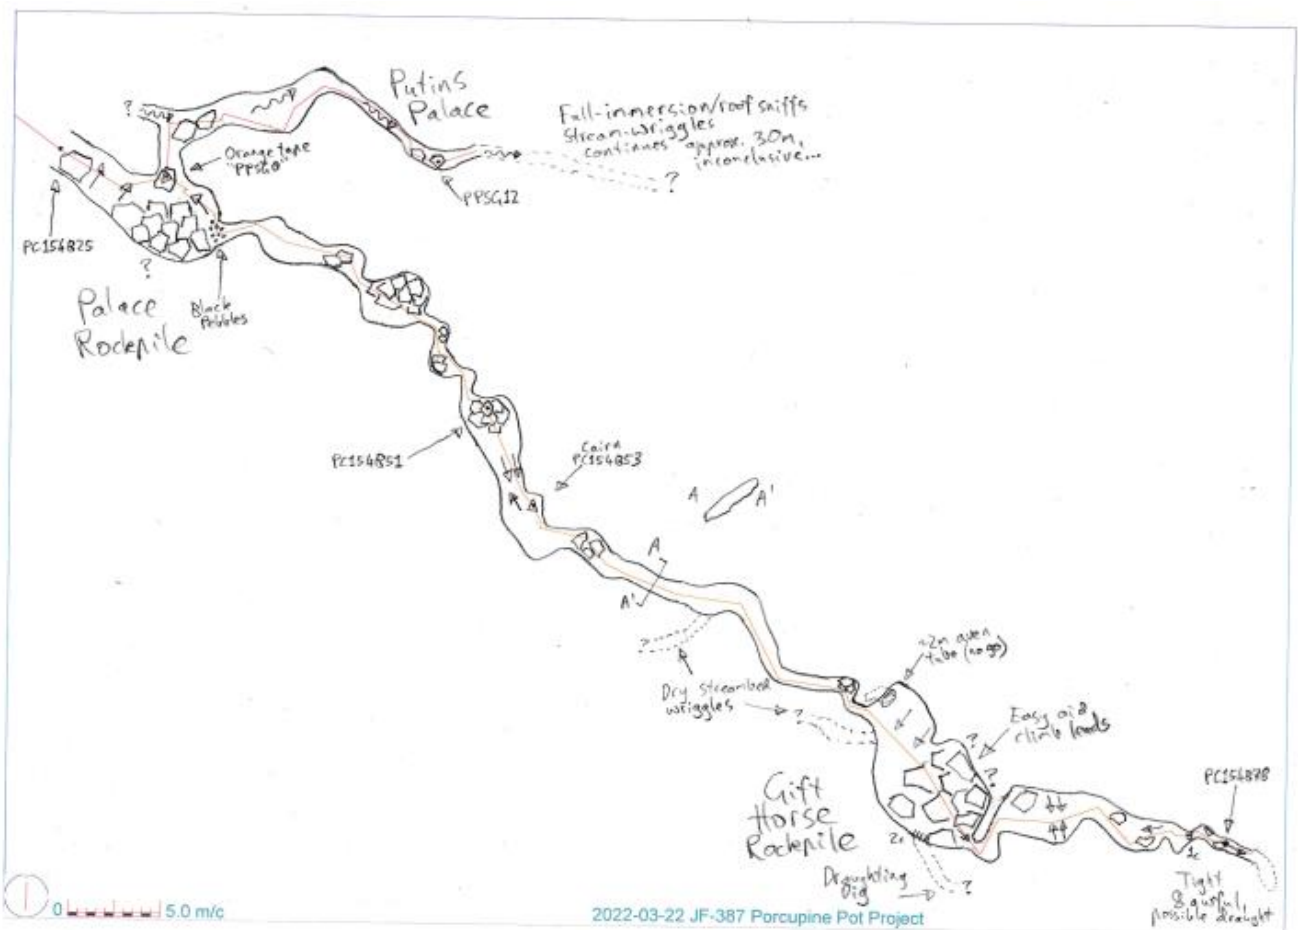 Putins
Palace
Full-immersion/roof sniffs
stream-wriggles
continues approx. 30m,
inconclusive...
?
?
Orange tape
"PPSG0"
PPSG12
PC154B25
?
Palace
Rockpile
Black
Pebbles
PC154B51
Cairn
PC154B53
A A'
A
A'
?
Dry streambed
wriggles
?
~2m aven
tube (no go)
Easy aid
climb leads
?
?
Gift
Horse
Rockpile
PC154B78
Draughting
Dig
?
Tight
& awful,
possible draught
0 5.0 m/c
2022-03-22 JF-387 Porcupine Pot Project